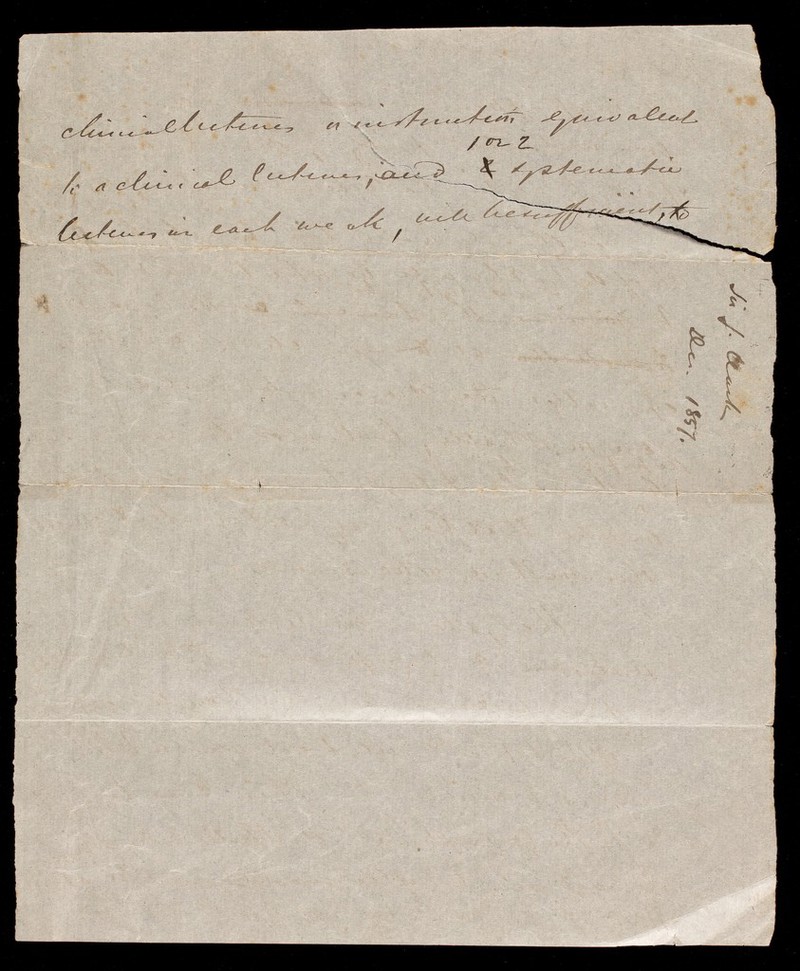 clinical lectures or instruction equivalent
1 or 2
to a clinical lectures, and 2 systematic
lectures in each week, will be sufficient, to
Sir J. Clark
Dec. 1857.